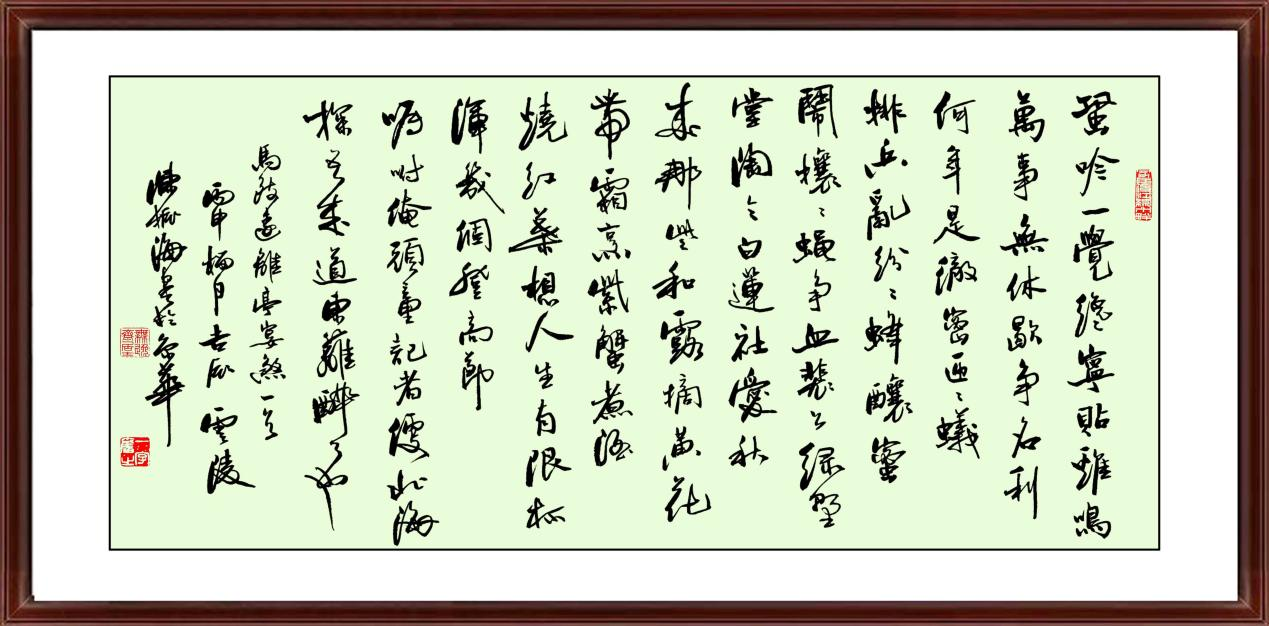 蛩吟一覺纔寧貼雞鳴
萬事無休歇争名利
何年是徹密匝〻蟻
排兵亂紛〻蜂釀蜜
鬧攘〻蠅争血裴公緑野
堂陶令白蓮社愛秋
來那些和露摘黄花
帶霜烹紫蟹煮酒
燒紅葉想人生有限杯
渾幾個登高節
囑咐俺頑童記者便北海
探吾來道東籬醉了也
馬致遠離亭宴煞一首
丙申月吉辰雲陵
海書於京華